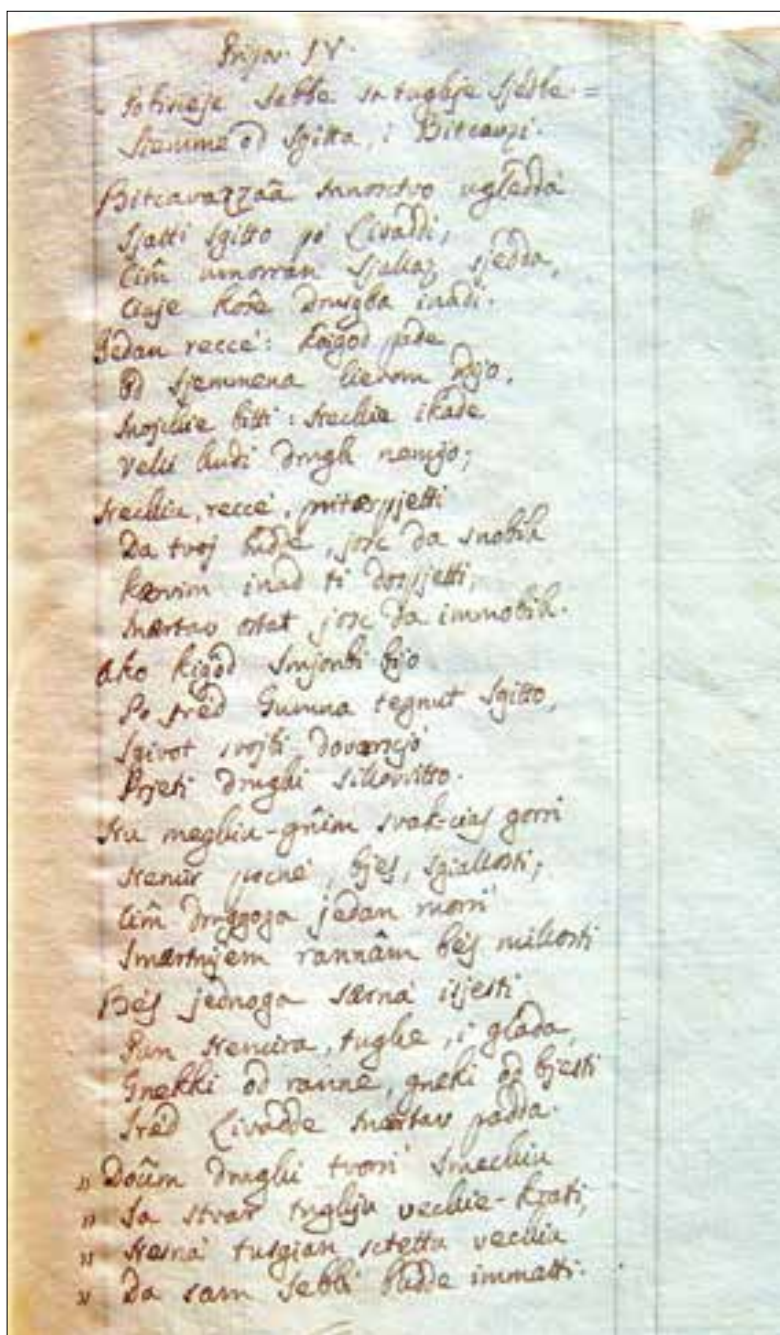 Prijov. IV.
Sebbe sa tughje sjeble =
Stemme od Sgitta, i Bitcauzi.
Bitcavazzaâ mnosctvo ugledda
Sjatti sgitto pô Livaddi,
Cim umorrân sjedda,
koie drugba inadi.
Jedan reccé: kôigod pade
Od sjemmena lievom
Mojchie bitti: Nechie ikade
Velu hudi drugh nemijo;
Nechiu, reccé, pritarpjetti
Da tvoj budde, josc da snobih
karvim inad ti dospjetti,
Martav ostat josc da immobih.
Ako kigôd bijo
Po srêd Gumna tegnut sgitto,
Sgivot svojbi dovarscjô
Prjeti drughi silovitto.
Nu meghiu-gnîm svak-cias gorri
Nemîr pocné, bjes, sgiallosti;
Cîm druggoga jedan morri
Smartnjem rannâm bés millosti
Bés jednoga sarna isjesti
Pun Nemira, tughe, i glada,
Gnekki od ranne, gneki od bjesti
Sred Livadde martav padda.
" Doûm drughi tvorri smechiu
" Sa stvar tughju vechie-krati,
" Nesna' tusgian sctetta vechiu
" Da sam sebbi budde immatti.